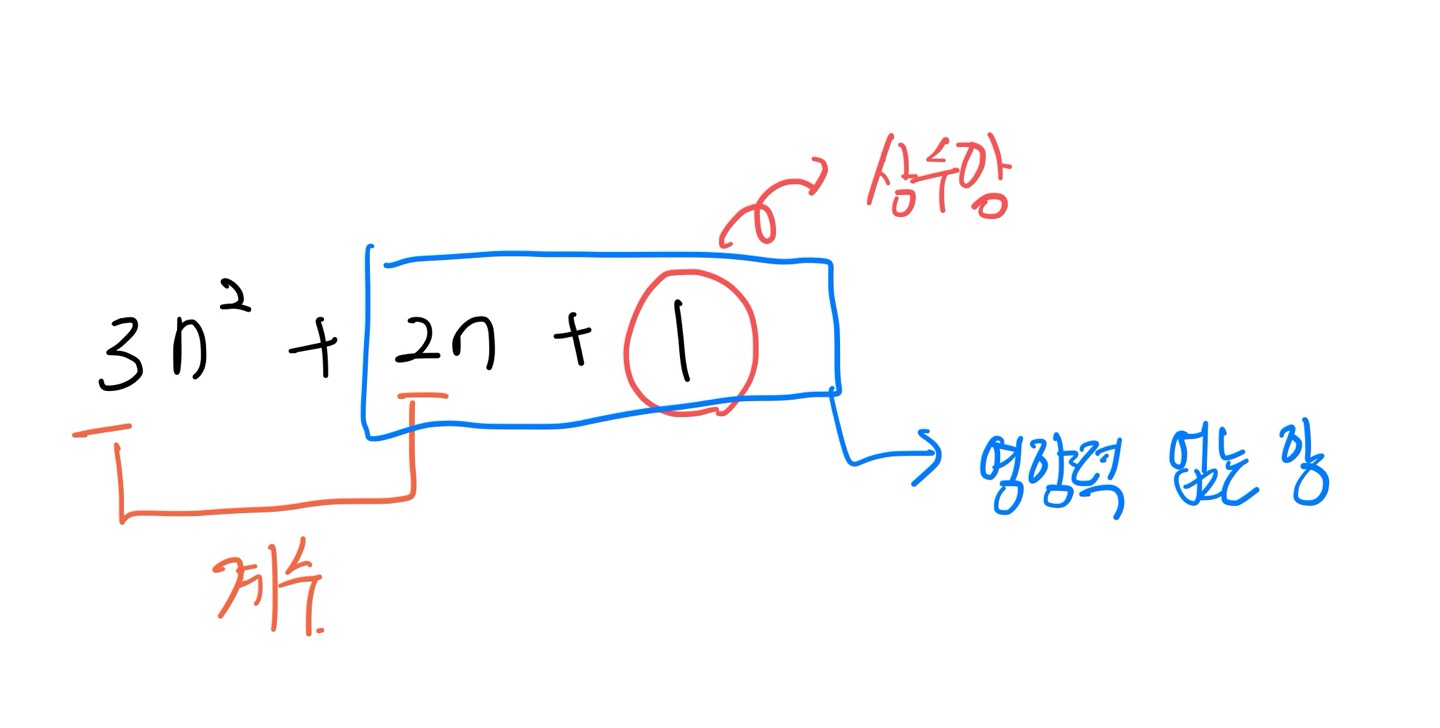 상수항
3n² + 2n + 1
영향력 없는 항
계수.